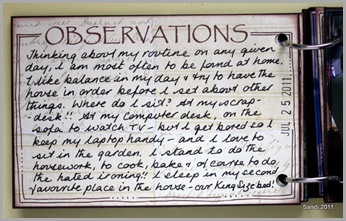 OBSERVATIONS
Thinking about my routine on any given
day, I am most often to be found at home.
I like balance in my day & try to have the
house in order before I set about other
things. Where do I sit? At my scrap-
-desk!! At my computer desk, on the
sofa to watch TV - but I get bored so I
keep my laptop handy - and I love to
sit in the garden. I stand to do the
housework, to cook, bake & of course to do
the hated ironing!! I sleep in my second
favourite place in the house - our King Size bed!
JUL 25 2011
Sandi 2011